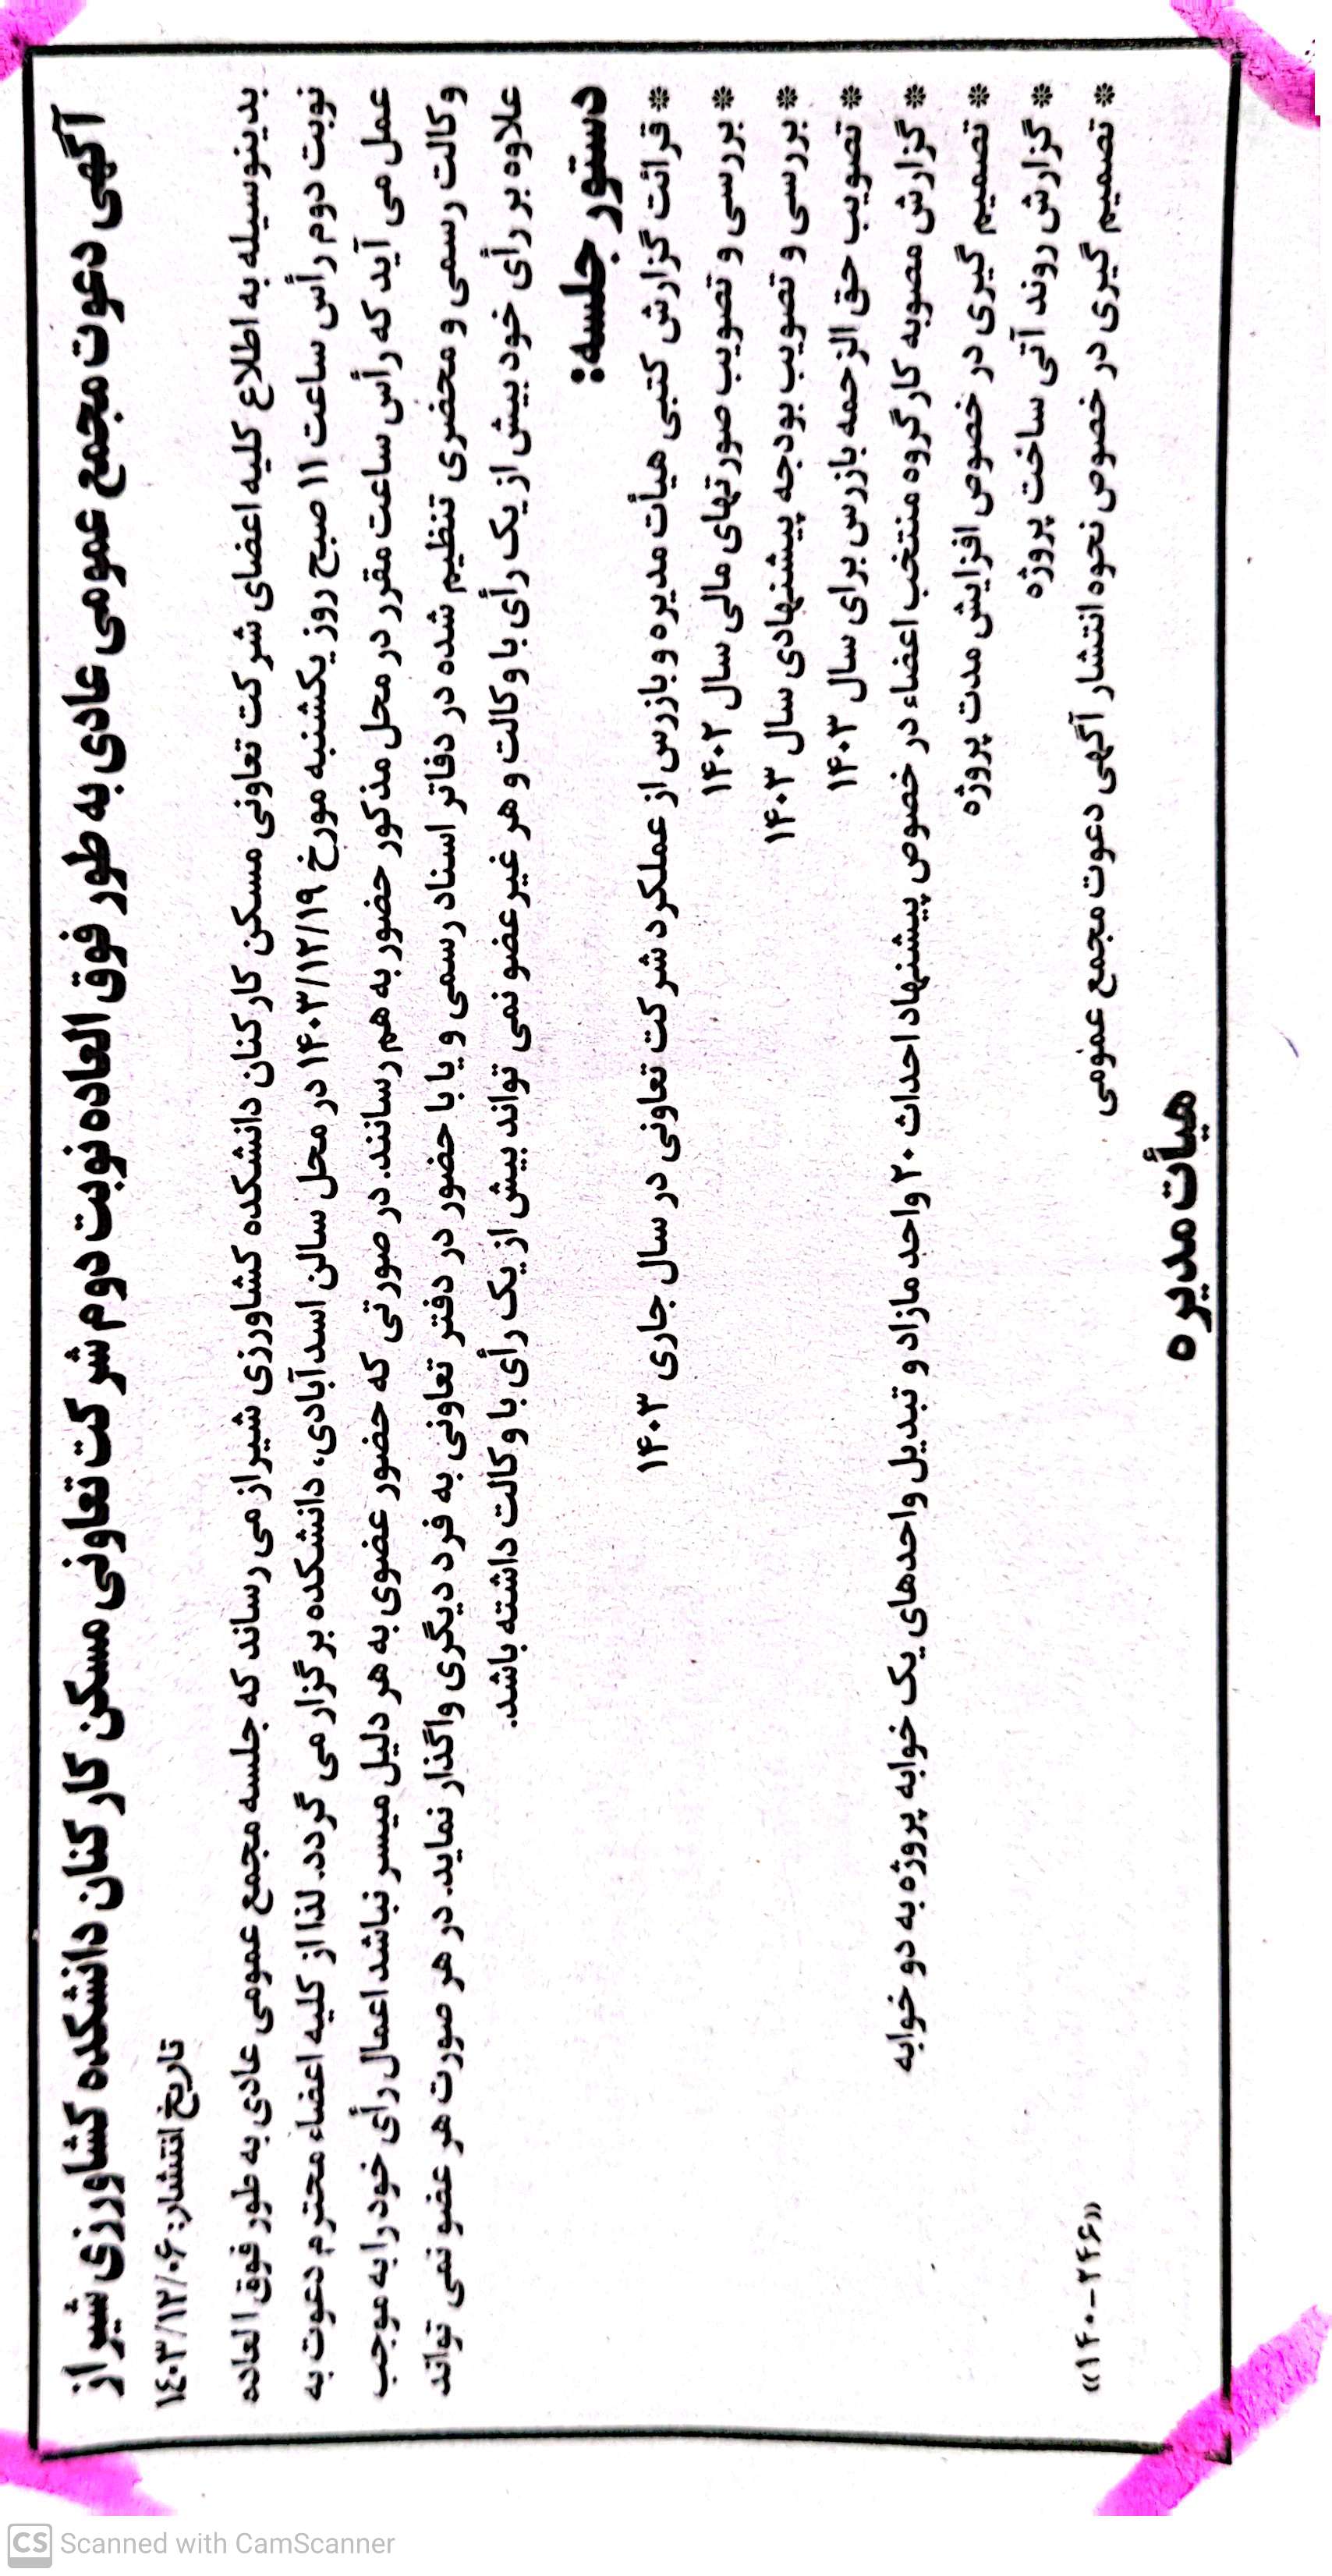 آگهی دعوت مجمع عمومی عادی به طور فوق العاده نوبت دوم شرکت تعاونی مسکن کارکنان دانشکده کشاورزی شیراز
تاریخ انتشار: ۱۴۰۳/۱۲/۰۶
بدینوسیله به اطلاع کلیه اعضای شرکت تعاونی مسکن کارکنان دانشکده کشاورزی شیراز می رساند که جلسه مجمع عمومی عادی به طور فوق العاده
نوبت دوم رأس ساعت ۱۱ صبح روز یکشنبه مورخ ۱۴۰۳/۱۲/۱۹ در محل سالن اسدآبادی، دانشکده برگزار می گردد. لذا از کلیه اعضاء محترم دعوت به
عمل می آید که رأس ساعت مقرر در محل مذکور حضور به هم رسانند. در صورتی که حضور عضوی به هر دلیل میسر نباشد اعمال رأی خود را به موجب
وکالت رسمی و محضری تنظیم شده در دفاتر اسناد رسمی و یا با حضور در دفتر تعاونی به فرد دیگری واگذار نماید. در هر صورت هر عضو نمی تواند
علاوه بر رأی خود بیش از یک رأی با وکالت و هر غیر عضو نمی تواند بیش از یک رأی با وکالت داشته باشد.
دستور جلسه:
* قرائت گزارش کتبی هیأت مدیره و بازرس از عملکرد شرکت تعاونی در سال جاری ۱۴۰۳
* بررسی و تصویب صورتهای مالی سال ۱۴۰۲
* بررسی و تصویب بودجه پیشنهادی سال ۱۴۰۳
* تصویب حق الزحمه بازرس برای سال ۱۴۰۳
* گزارش مصوبه کارگروه منتخب اعضاء در خصوص پیشنهاد احداث ۲۰ واحد مازاد و تبدیل واحدهای یک خوابه پروژه به دو خوابه
* تصمیم گیری در خصوص افزایش مدت پروژه
* گزارش روند آتی ساخت پروژه
* تصمیم گیری در خصوص نحوه انتشار آگهی دعوت مجمع عمومی
«۱۴۰-۲۴۶»
هیأت مدیره
CS Scanned with CamScanner